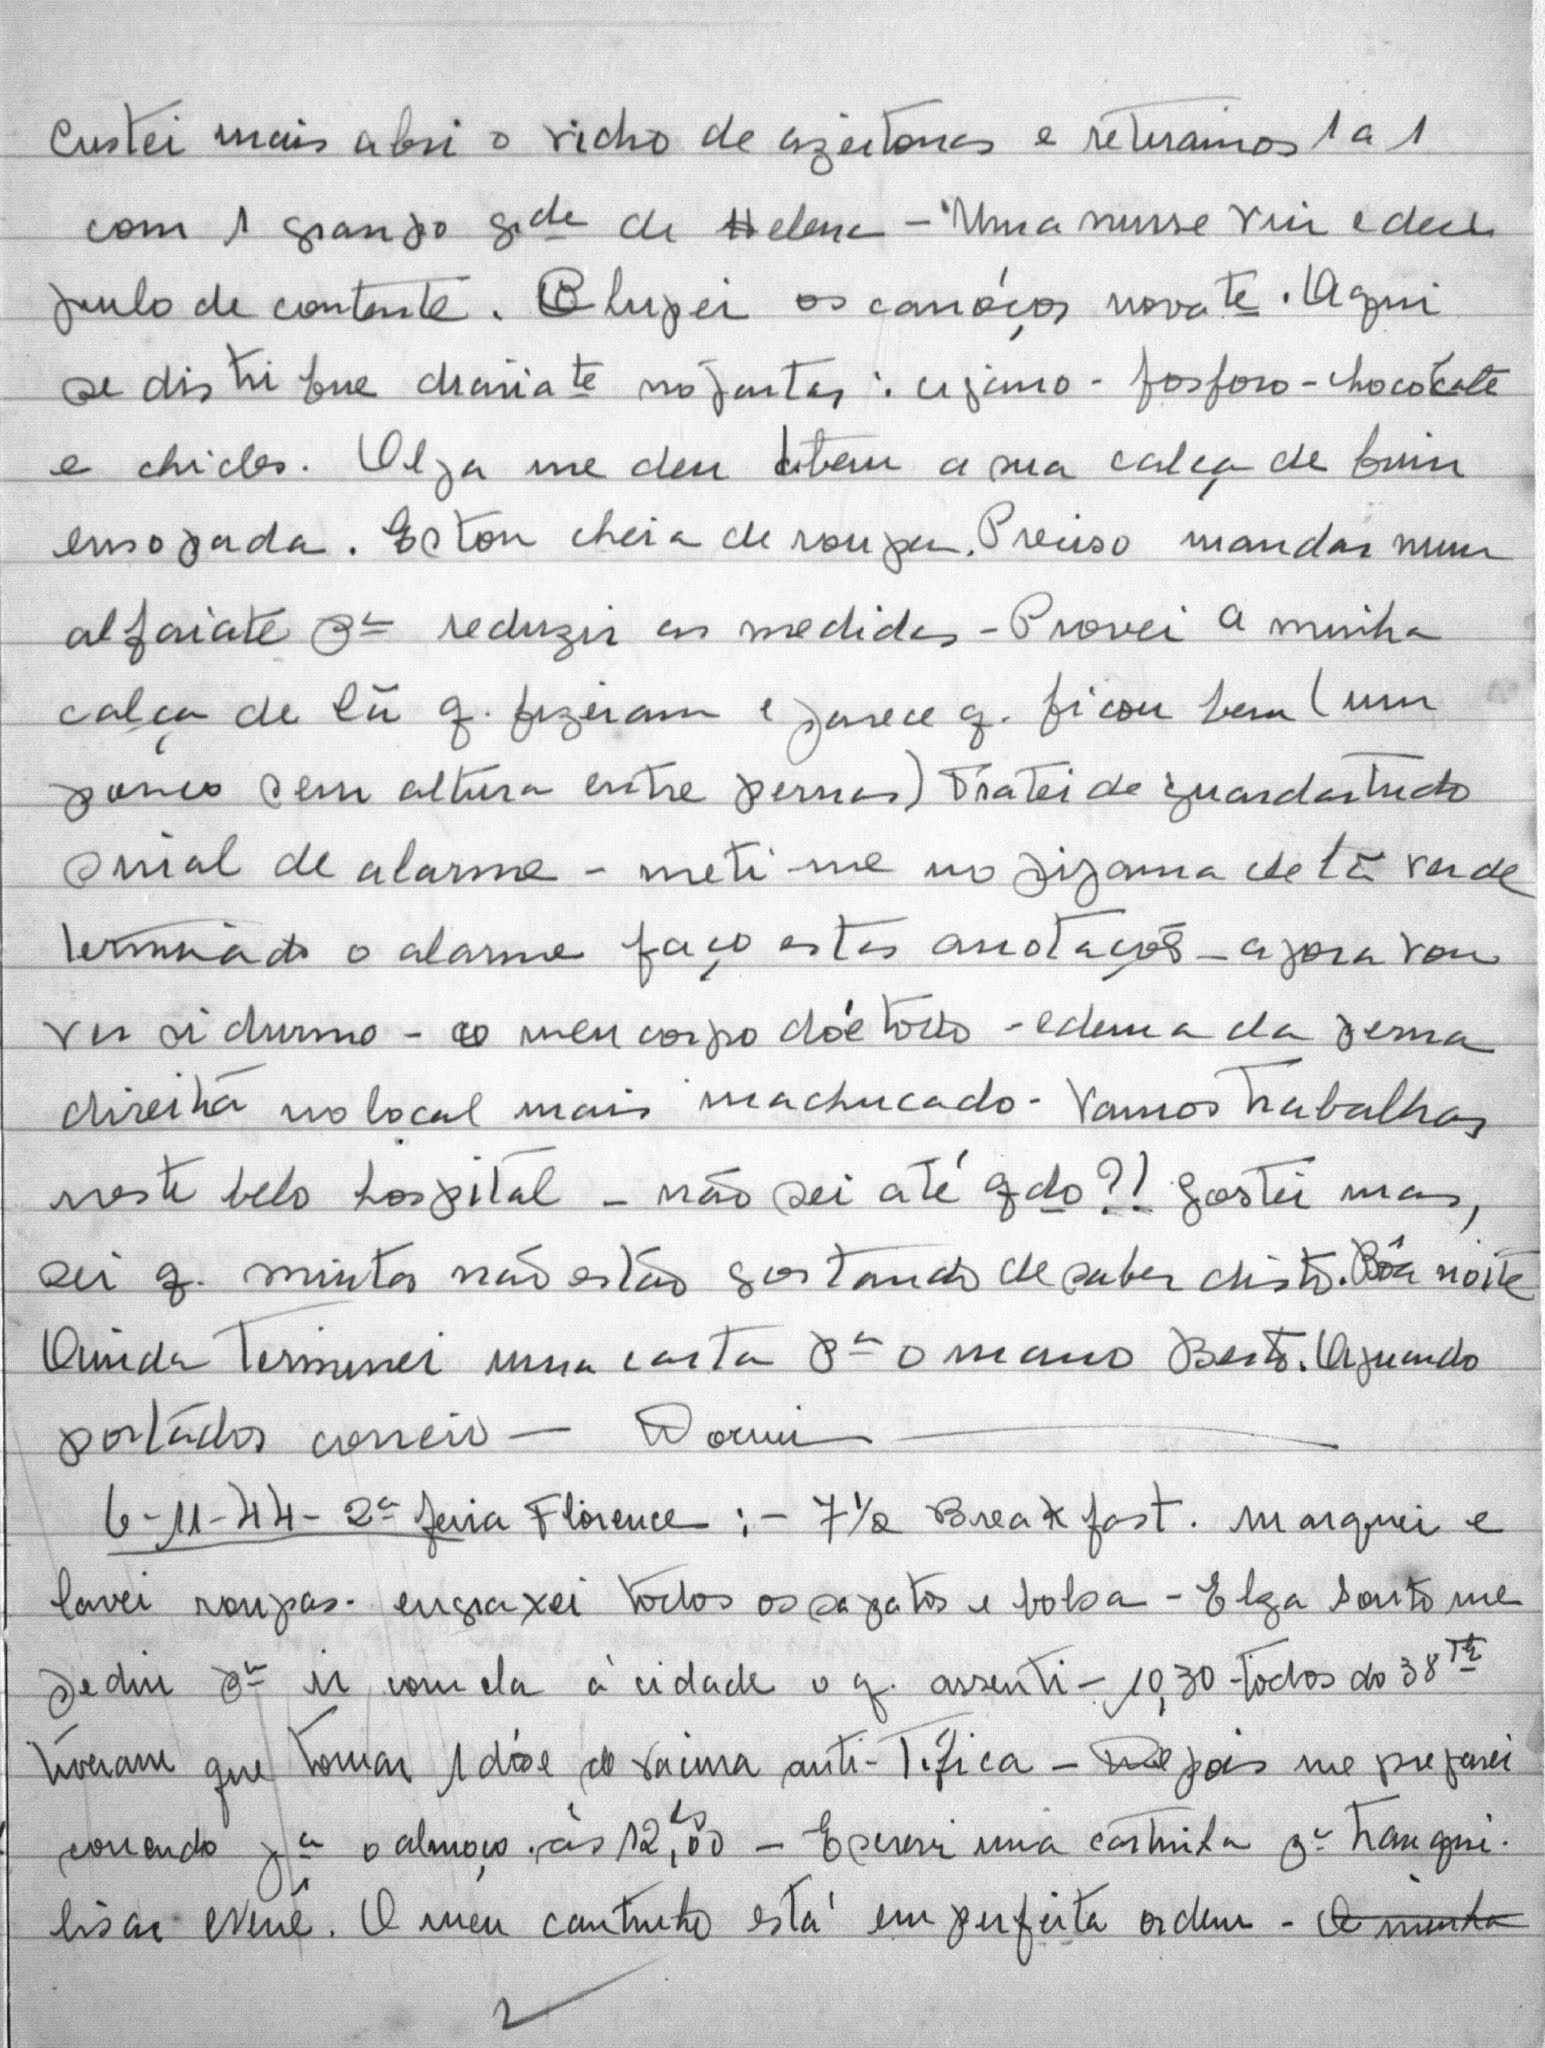 Custei mais abri o vidro de azeitonas e retiramos 1 a 1
com 1 grampo gde de Helena - Uma nurse viu e deu
pulo de contente. Chupei os caroços novate. Aqui
se distribue diariate no jantar: cigarro - fosforo - chocolate
e chicles. Elza me deu tbem a sua calça de brim
ensopada. Estou cheia de roupa. Preciso mandar num
alfaiate pa reduzir as medidas - Provei a minha
calça de lã q. fizeram e parece q. ficou bem (um
pouco sem altura entre pernas) Tratei de guardar tudo
sinal de alarme - meti-me no pijama de lã verde
terminado o alarme faço estas anotações - agora vou
ver si durmo - o meu corpo dóe todo - edema da perna
direita no local mais machucado - Vamos trabalhar
neste belo hospital - não sei até qdo?! Gostei mas,
sei q. muitos não estão gostando de saber disto. Bôa noite
Ainda terminei uma carta pa o mano Berto. Aguardo
portador correio — Dormi —
6-11-44 - 2a feira Florence :- 7½ Breakfast. Marquei e
lavei roupas - engraxei todos os sapatos e bolsa - Elza Souto me
pediu pa ir com ela à cidade o q. assenti - 10,30 - todos do 38th
tiveram que tomar 1 dóse de vacina anti-Tífica - Depois me preparei
correndo pa o almoço às 12,00 hs - Escrevi uma cartinha pa tranqui-
lisar Nenê. O meu cantinho está em perfeita ordem - A minha